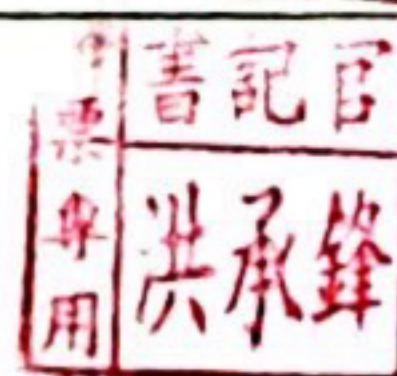 書記官
洪承鋒
票專用